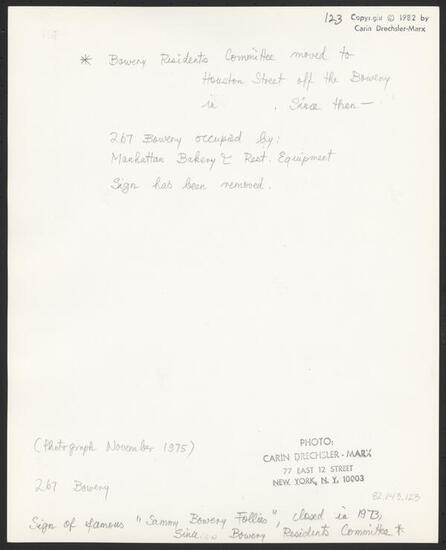 123 Copyright © 1982 by
Carin Drechsler-Marx
* Bowery Residents Committee moved to
Houston Street off the Bowery
in . Since then —
267 Bowery occupied by:
Manhattan Bakery & Rest. Equipment
Sign has been removed.
(Photograph November 1975)
PHOTO:
CARIN DRECHSLER-MARX
77 EAST 12 STREET
NEW YORK, N. Y. 10003
267 Bowery
82.143.123
Sign of famous "Sammy Bowery Follies", closed in 1973,
Since Bowery Residents Committee *